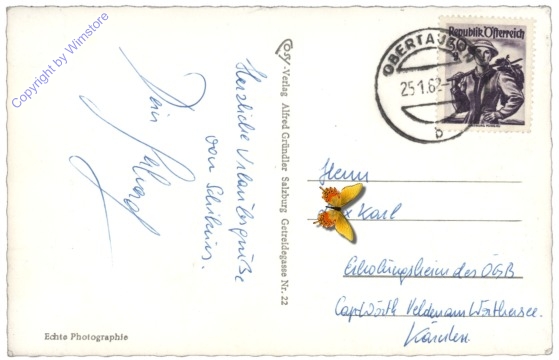 Copyright by Wimstore
Herzliche Urlaubsgrüße
vom
Dein
Cosy-Verlag Alfred Gründler Salzburg Getreidegasse Nr. 22
Echte Photographie
Republik Österreich
OBERTAUERN
25.1.62-
b
Herrn
Karl
Erholungsheim des ÖGB
Cap Wörth Velden am Wörthersee.
Kärnten.